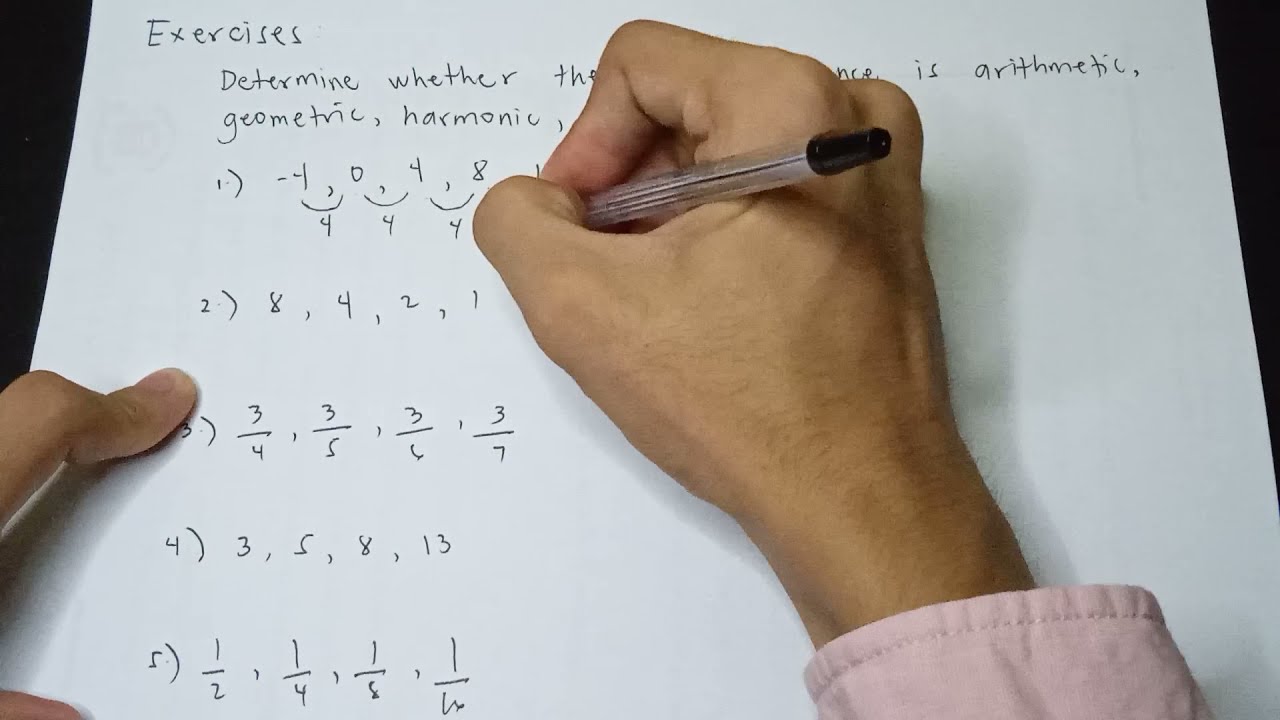 Exercises
Determine whether the is arithmetic,
geometric, harmonic,
1.) -4, 0, 4, 8,
4 4 4
2.) 8, 4, 2, 1
3.) 3/4, 3/5, 3/6, 3/7
4) 3, 5, 8, 13
5.) 1/2, 1/4, 1/8, 1/16